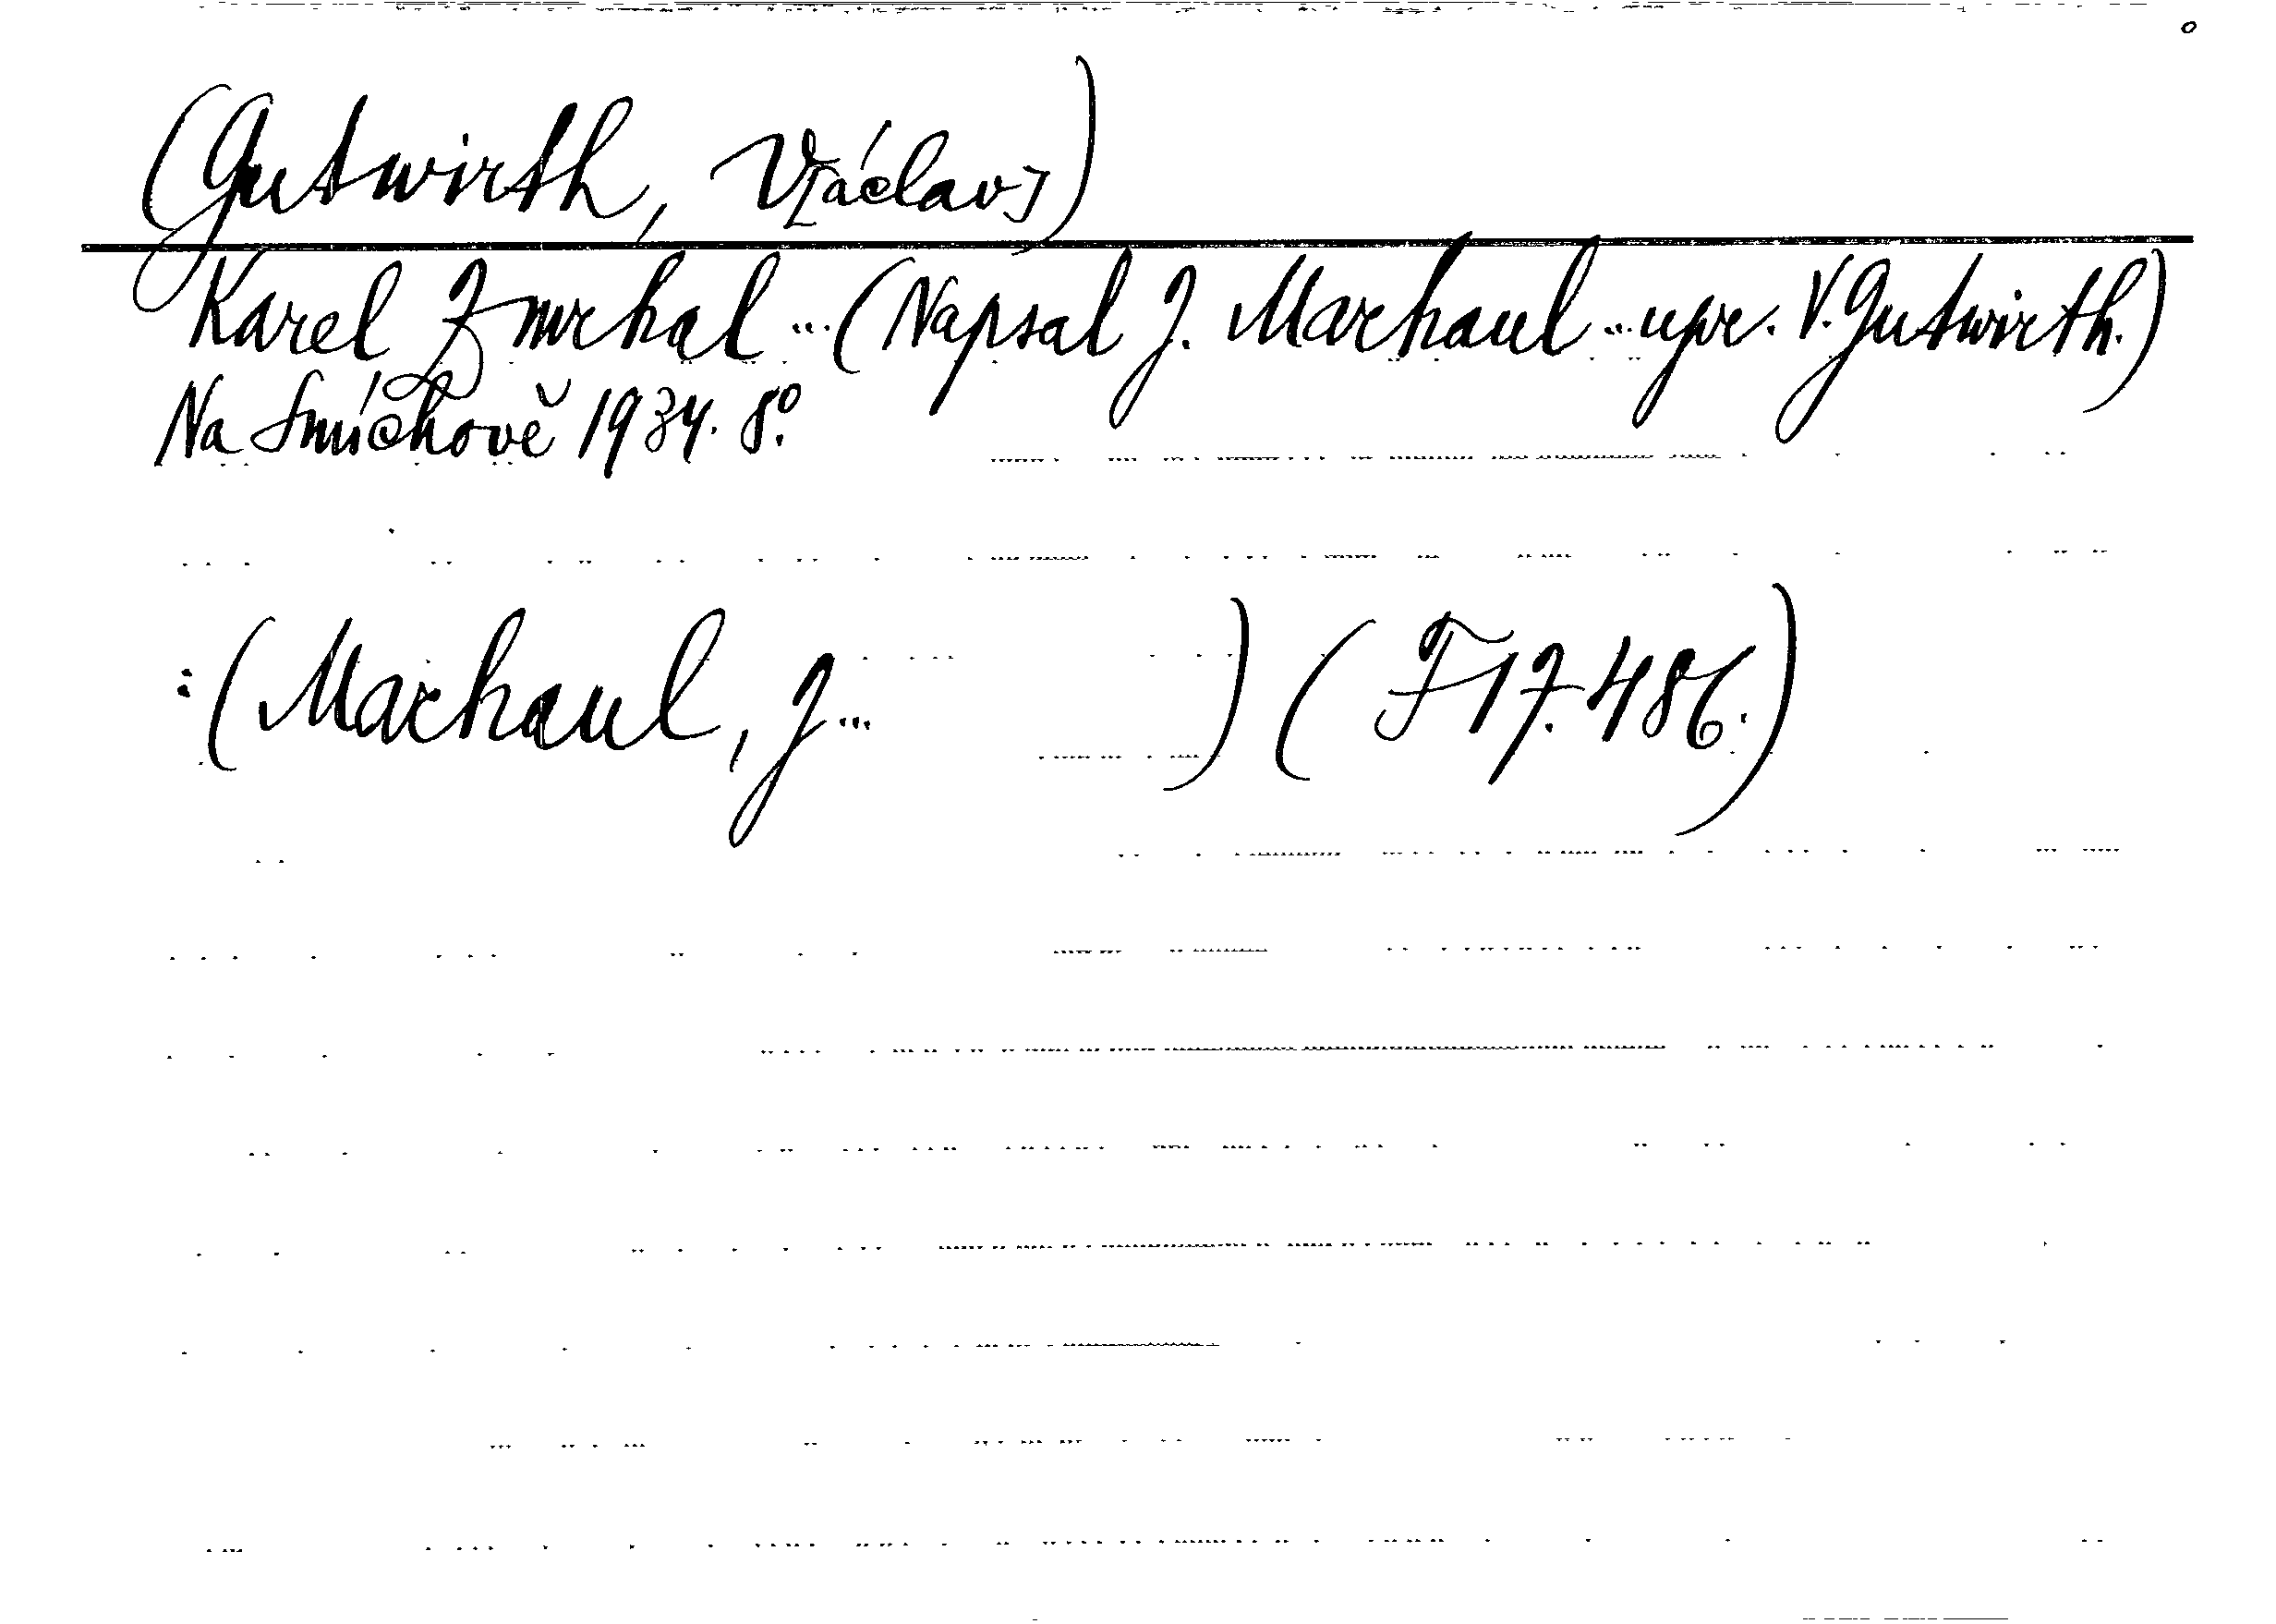 (Gutwirth, V[áclav])
Karel Zmrhal ... (Napsal J. Marhaul ... upr. V. Gutwirth.)
Na Smíchově 1934. 8°.
: (Marhaul, J ... ) (F 17.486.)